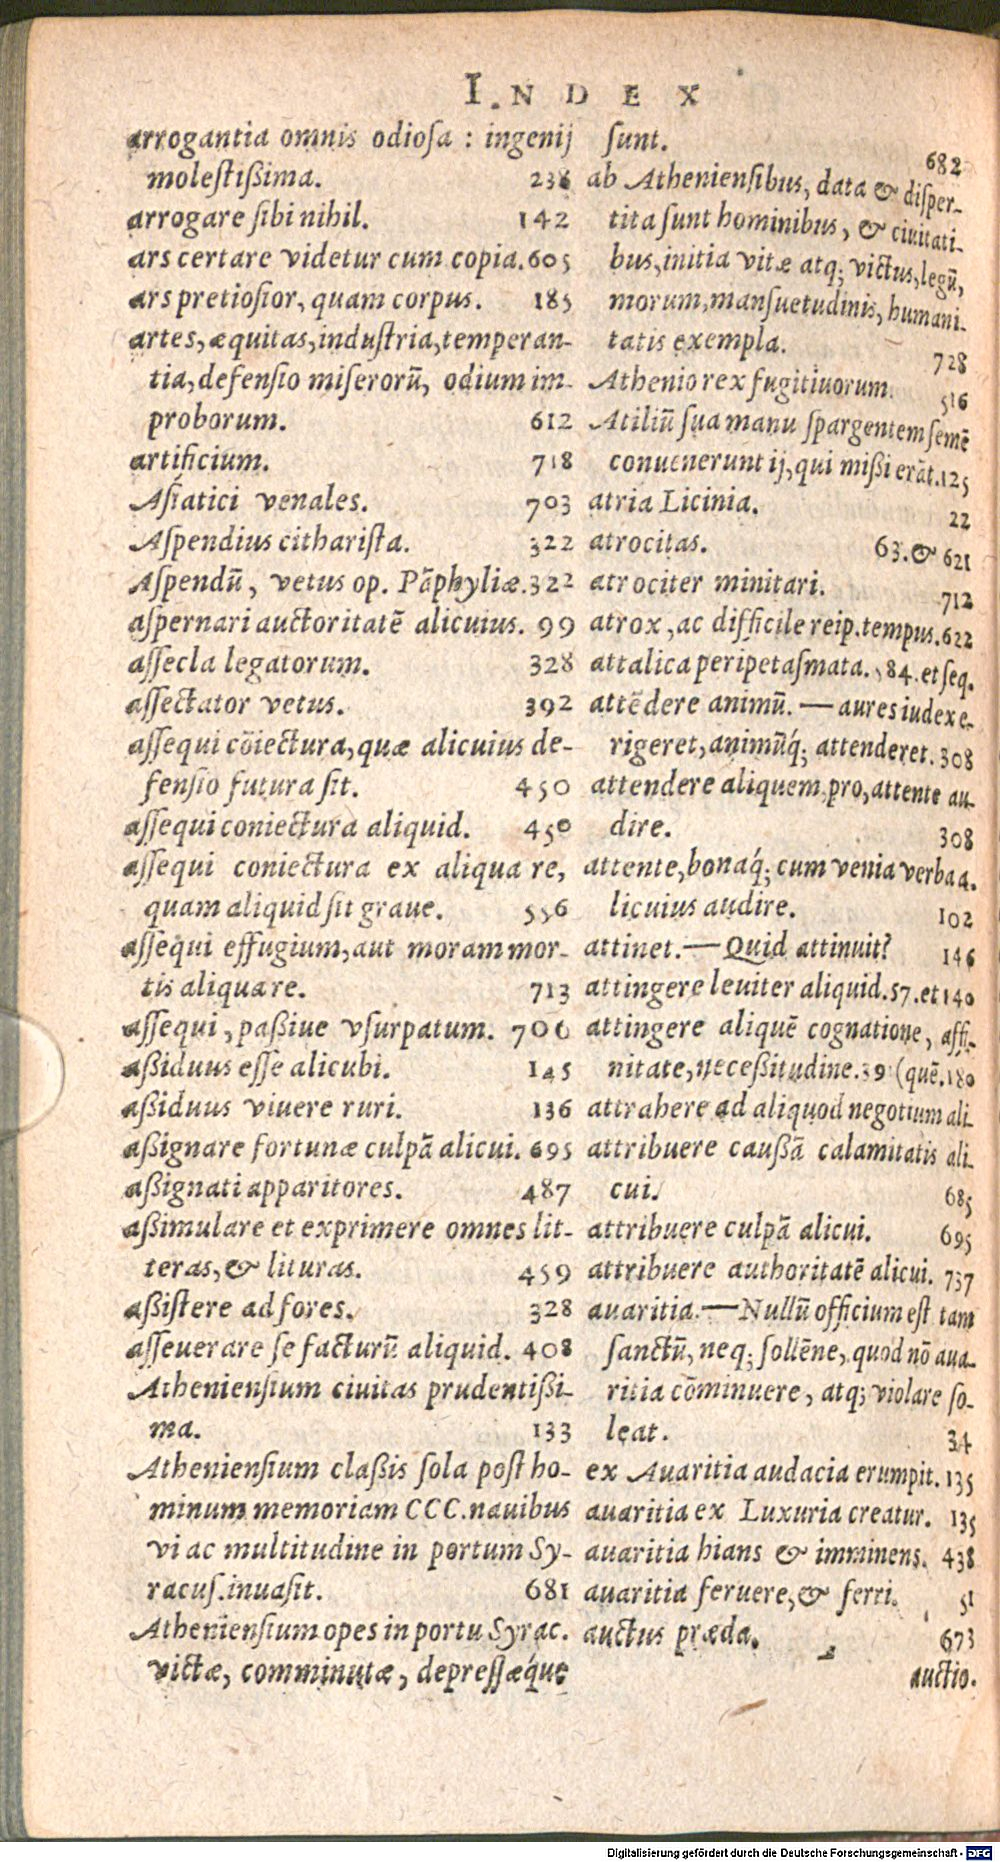 INDEX
arrogantia omnis odiosa : ingenij
molestißima. 238
arrogare sibi nihil. 142
ars certare videtur cum copia. 605
ars pretiosior, quam corpus. 185
artes, æquitas, industria, temperan-
tia, defensio miserorũ, odium im-
proborum. 612
artificium. 718
Asiatici venales. 703
Aspendius citharista. 322
Aspendũ, vetus op. Pãphyliæ. 322
aspernari auctoritatẽ alicuius. 99
assecla legatorum. 328
assectator vetus. 392
assequi cõiectura, quæ alicuius de-
fensio futura sit. 450
assequi coniectura aliquid. 450
assequi coniectura ex aliqua re,
quam aliquid sit graue. 556
assequi effugium, aut moram mor-
tis aliqua re. 713
assequi, paßiue vsurpatum. 706
aßiduus esse alicubi. 145
aßiduus viuere ruri. 136
aßignare fortunæ culpã alicui. 695
aßignati apparitores. 487
aßimulare et exprimere omnes lit-
teras, & lituras. 459
aßistere ad fores. 328
asseuerare se facturũ aliquid. 408
Atheniensium ciuitas prudentißi-
ma. 133
Atheniensium claßis sola post ho-
minum memoriam CCC. nauibus
vi ac multitudine in portum Sy-
racus. inuasit. 681
Atheniensium opes in portu Syrac.
victæ, comminutæ, depressæq́ue
sunt. 682
ab Atheniensibus, data & disper-
tita sunt hominibus, & ciuitati-
bus, initia vitæ atq; victus, legũ,
morum, mansuetudinis, humani-
tatis exempla. 728
Athenio rex fugitiuorum. 516
Atiliũ sua manu spargentem semẽ
conuenerunt ij, qui mißi erãt. 125
atria Licinia. 22
atrocitas. 63. & 621
atrociter minitari. 712
atrox, ac difficile reip. tempus. 622
attalica peripetasmata. 184. et seq.
attẽdere animũ. — aures iudex e-
rigeret, animũq́; attenderet. 308
attendere aliquem, pro, attente au-
dire. 308
attente, bonaq́; cum venia verba a-
licuius audire. 102
attinet. — Quid attinuit? 146
attingere leuiter aliquid. 57. et 140
attingere aliquẽ cognatione, affi-
nitate, neceßitudine. 39 (quẽ. 180
attrahere ad aliquod negotium ali-
attribuere caußã calamitatis ali-
cui. 685
attribuere culpã alicui. 695
attribuere authoritatẽ alicui. 737
auaritia. — Nullũ officium est tam
sanctũ, neq; sollẽne, quod nõ aua-
ritia cõminuere, atq; violare so-
leat. 34
ex Auaritia audacia erumpit. 135
auaritia ex Luxuria creatur. 135
auaritia hians & imminens. 438
auaritia feruere, & ferri. 51
auctus præda. 673
auctio.
Digitalisierung gefördert durch die Deutsche Forschungsgemeinschaft - DFG